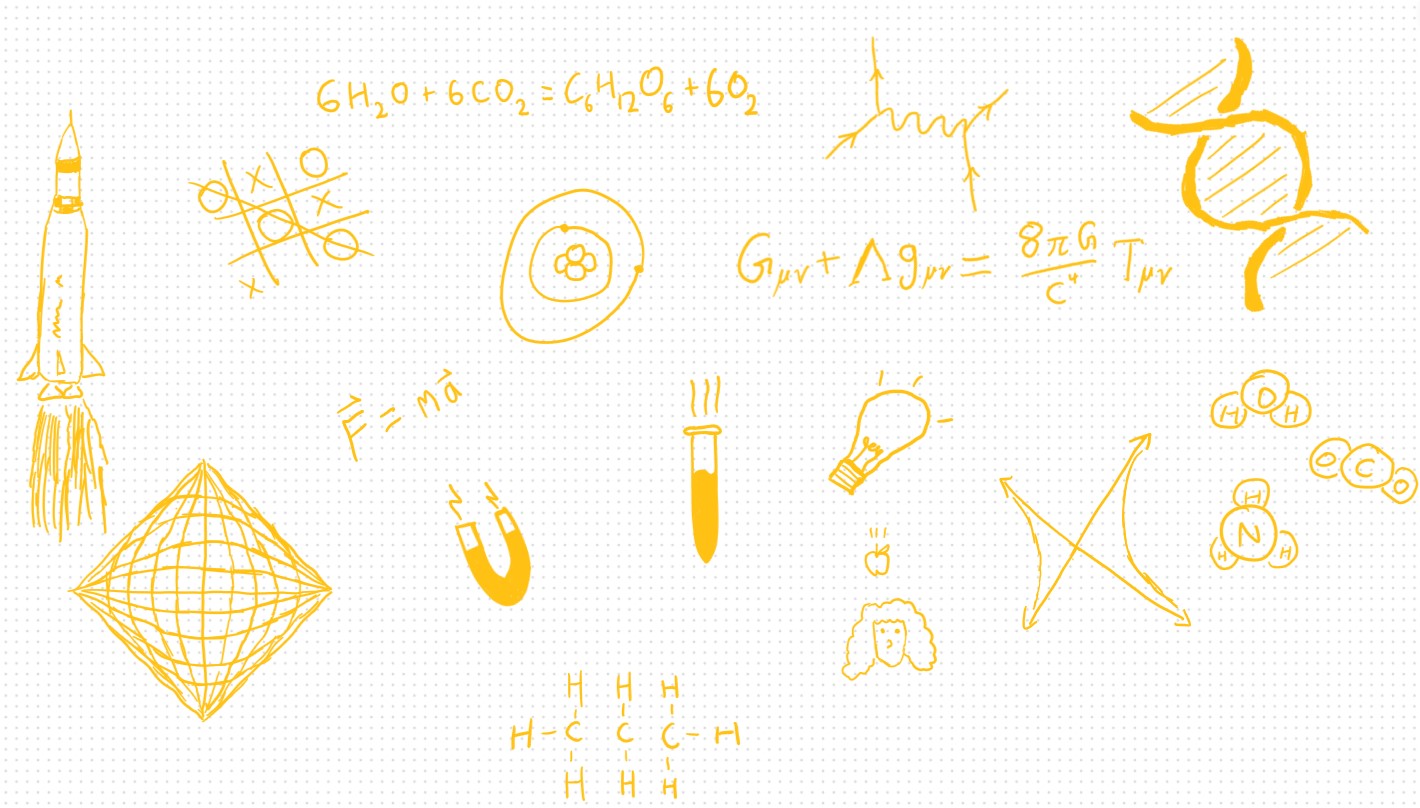 6H₂O + 6CO₂ = C₆H₁₂O₆ + 6O₂
O
X
O X
O
O
X
G_μν + Λg_μν = 8πG/c⁴ T_μν
F⃗ = ma⃗
H O H
O C O
H
N
H H
H H H
H-C C C-H
H H H